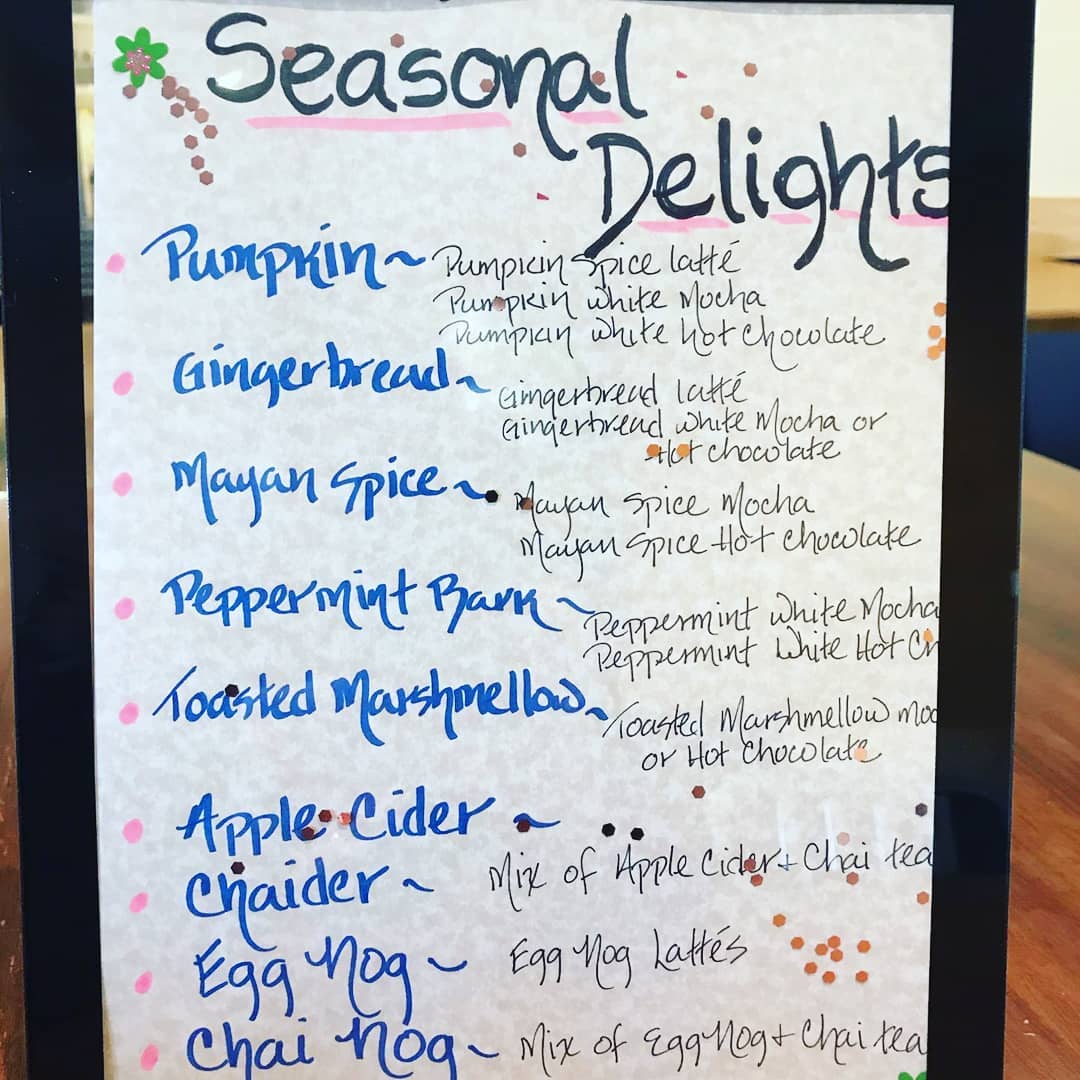 Seasonal
Delights
Pumpkin ~ Pumpkin Spice latté
Pumpkin White Mocha
Pumpkin White Hot Chocolate
Gingerbread ~ Gingerbread latté
Gingerbread White Mocha or
Hot Chocolate
Mayan Spice ~ Mayan Spice Mocha
Mayan Spice Hot Chocolate
Peppermint Bark ~ Peppermint White Mocha
Peppermint White Hot Ch
Toasted Marshmellow ~ Toasted Marshmellow Moc
or Hot Chocolate
Apple Cider ~
Chaider ~ Mix of Apple Cider + Chai tea
Egg Nog ~ Egg Nog Lattés
Chai Nog ~ Mix of Egg Nog + Chai tea